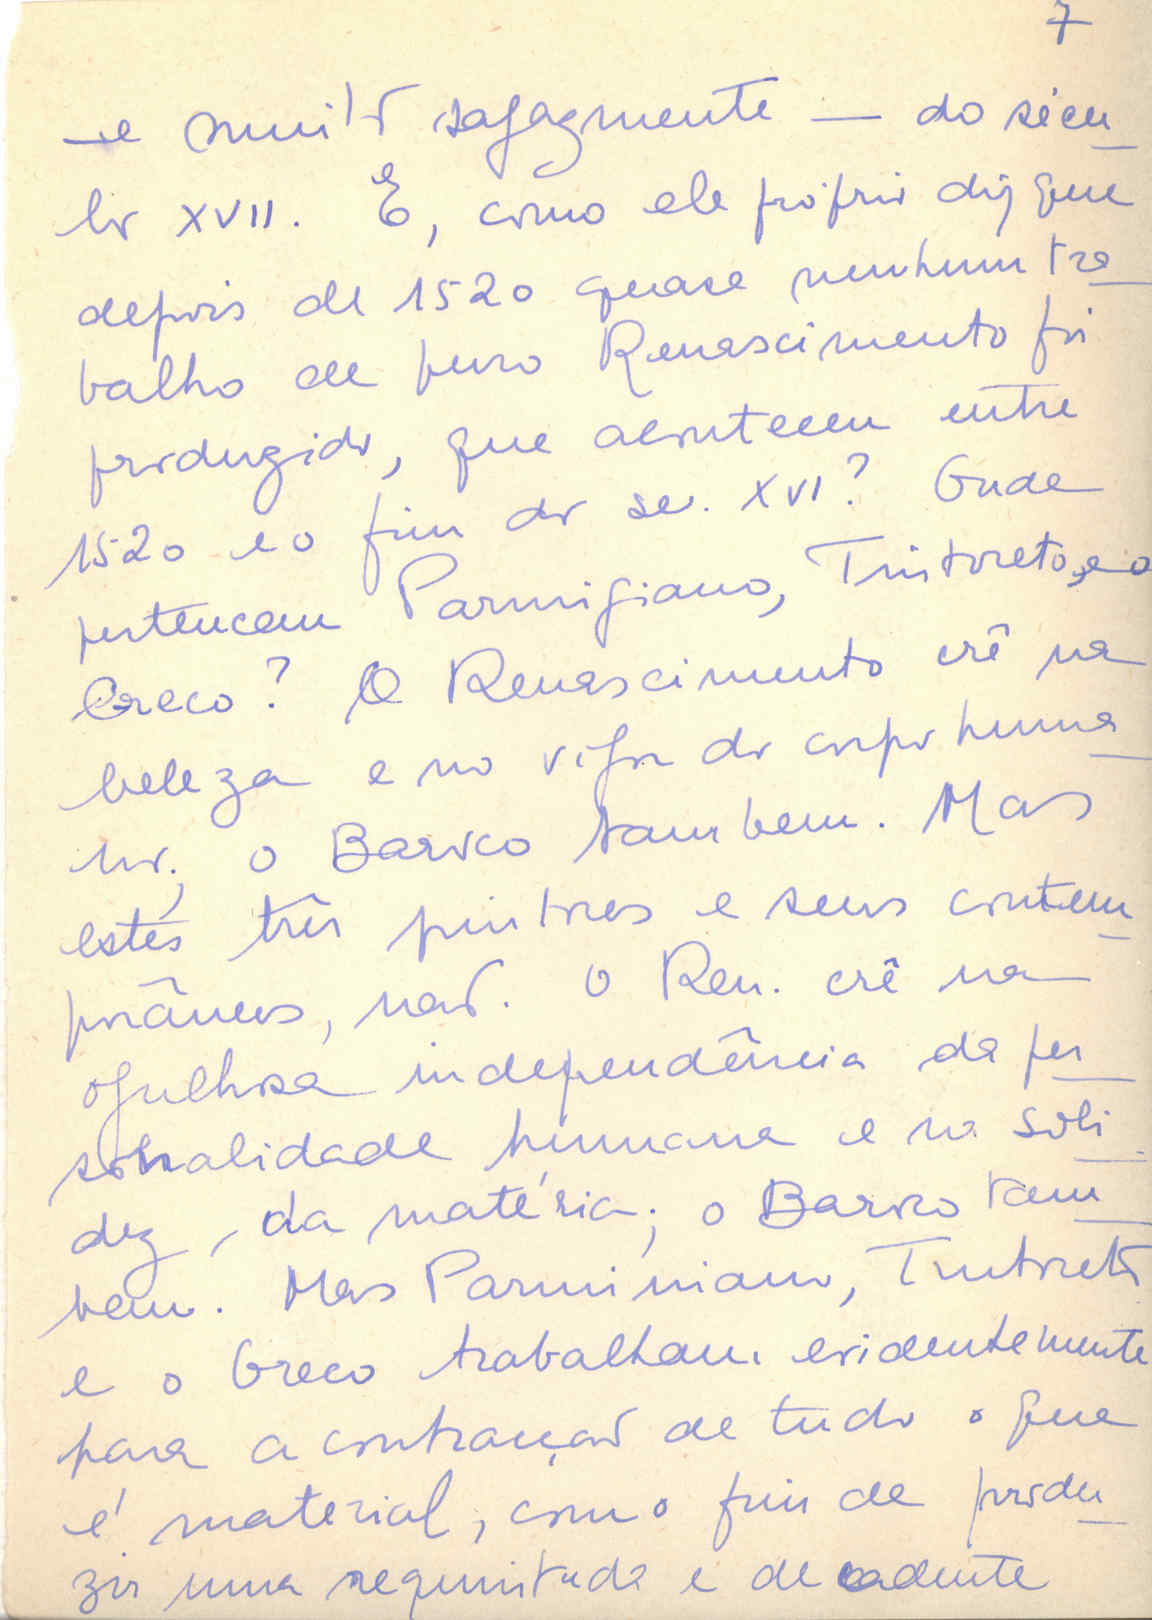 7
– e muito sagazmente — do sécu
lo XVII. E, como ele próprio diz que
depois de 1520 quase nenhum tra
balho de puro Renascimento foi
produzido, que aconteceu entre
1520 e o fim do sec. XVI? Onde
pertencem Parmigiano, Tintoreto, e o
Greco? O Renascimento crê na
beleza e no vigor do corpo huma
no; o Barroco tambem. Mas
estes três pintores e seus contem
porâneos, não. O Ren. crê na
orgulhosa independência da per
sonalidade humana e na soli
dez, da matéria; o Barroco tam
bem. Mas Parminiano, Tintoreto
e o Greco trabalham evidentemente
para a contração de tudo o que
é material, com o fim de produ
zir uma requintada e decadente